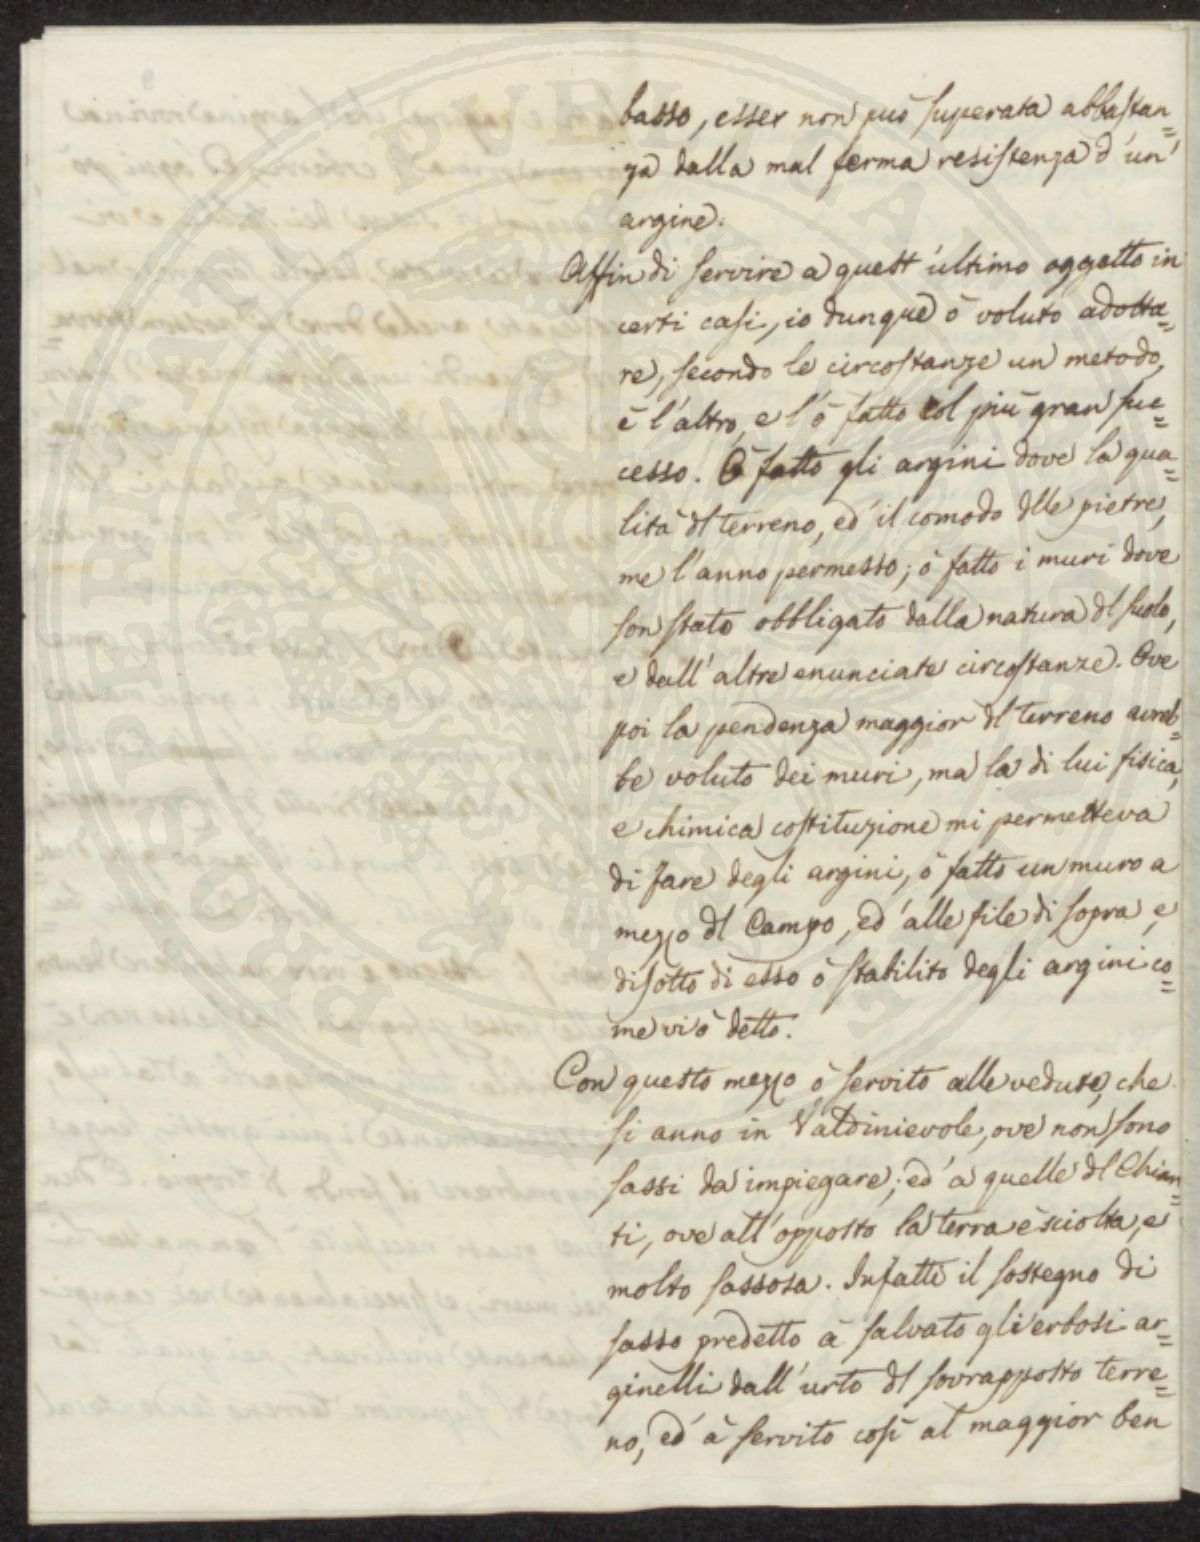 basso, esser non può superata abbastan=
za dalla mal ferma resistenza d'un'
argine.
Affin di servire a quest'ultimo oggetto in
certi casi, io dunque ò voluto adotta=
re, secondo le circostanze un metodo,
e l'altro, e l'ò fatto col più gran suc=
cesso. Ò fatto gli argini dove la qua=
lità dl terreno, ed' il comodo dlle pietre,
me l'anno permesso; ò fatto i muri dove
son stato obbligato dalla natura dl suolo,
e dall'altre enunciate circostanze. Ove
poi la pendenza maggior dl terreno avreb=
be voluto dei muri, ma la di lui fisica,
e chimica costituzione mi permetteva
di fare degli argini, ò fatto un muro a
mezzo dl Campo, ed' alle file di sopra, e
disotto di esso ò stabilito degli argini co=
me vi ò detto.
Con questo mezzo ò servito alle vedute, che
si anno in Valdinievole, ove non sono
sassi da impiegare; ed' a quelle dl Chian=
ti, ove all'opposto la terra è sciolta, e
molto sassosa. Infatti il sostegno di
sasso predetto à salvato gli erbosi ar=
ginelli dall'urto dl sovrapposto terre=
no, ed' à servito così al maggior ben
PROSPERITATI PUBLICAE